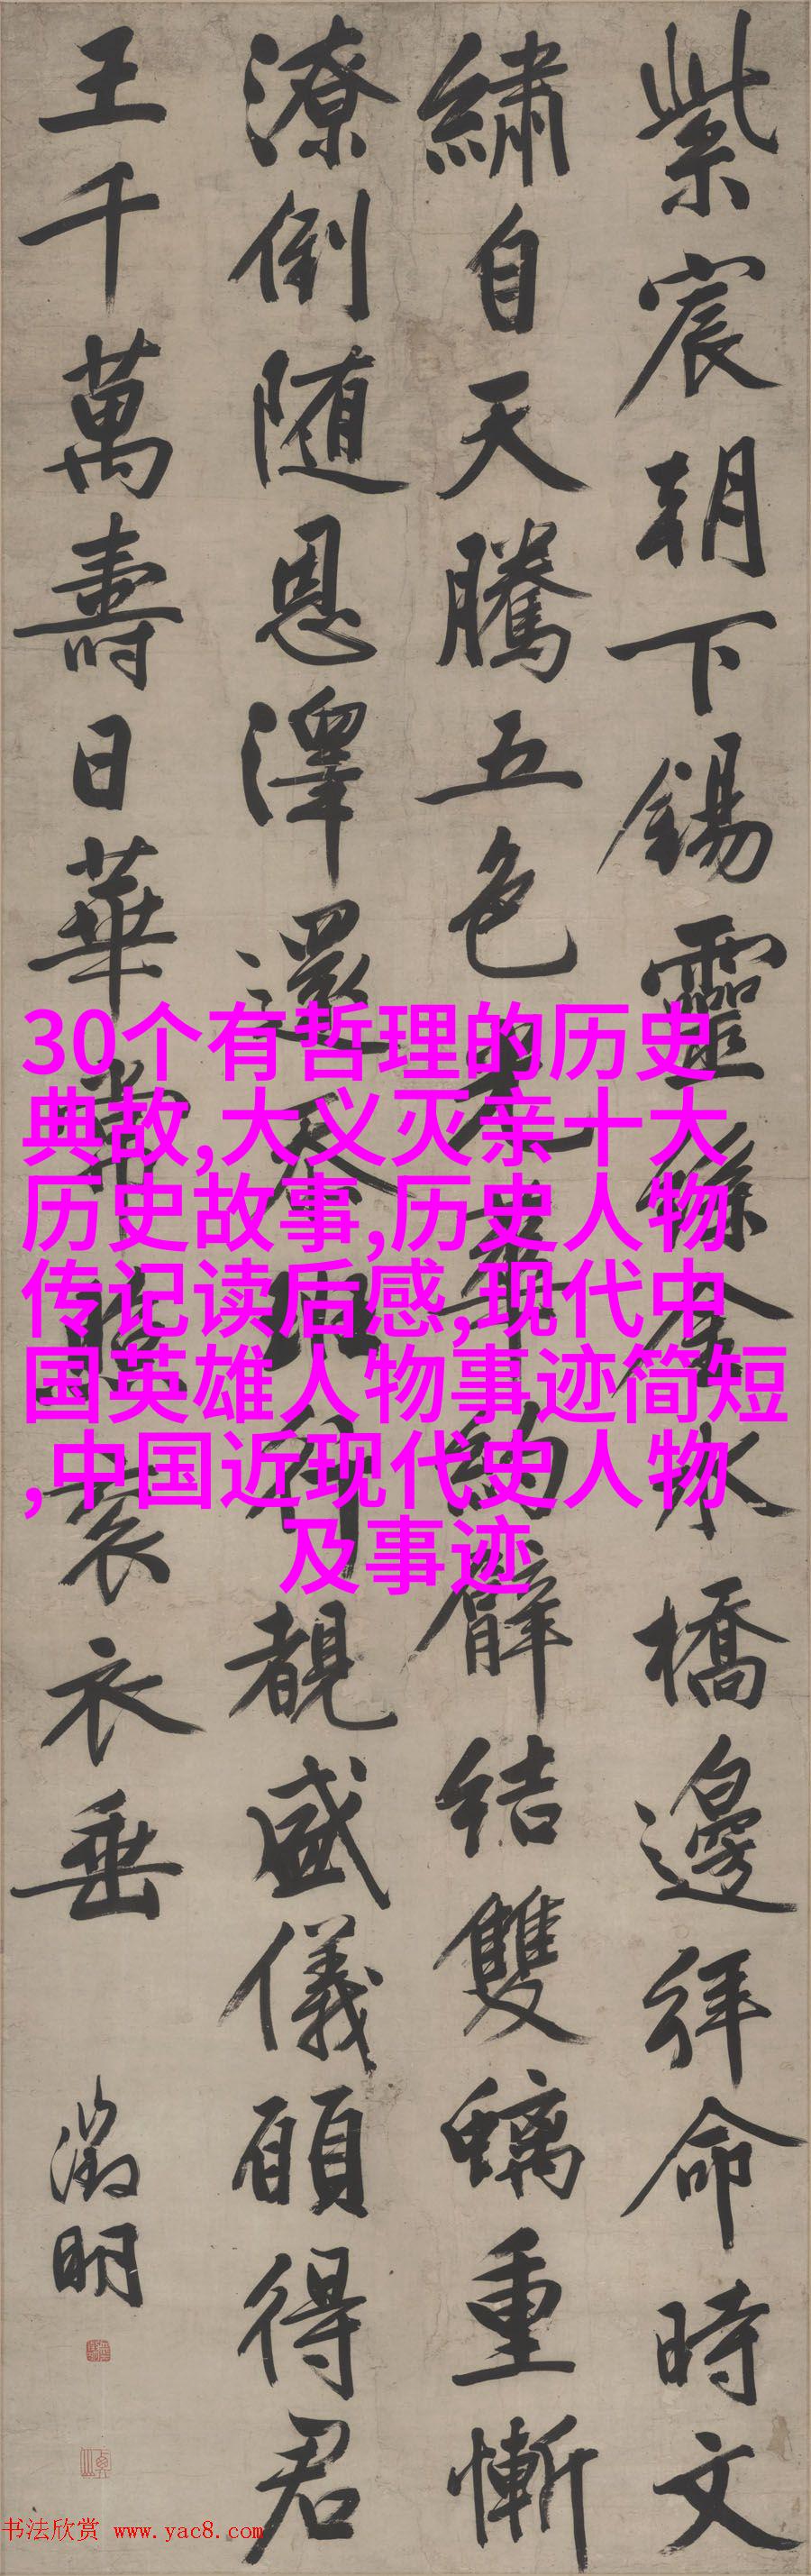 紫宸朝下錫靈絲金水橋邊拜命時文
繡自天騰五色光華約臂結雙螭重慚
潦倒随恩澤還忝班行覩盛儀願得君
王千萬壽日華常照袞衣垂
徵明
30个有哲理的历史
典故,大义灭亲十大
历史故事,历史人物
传记读后感,现代中
国英雄人物事迹简短
,中国近现代史人物
及事迹
书法欣赏 www.yac8.com